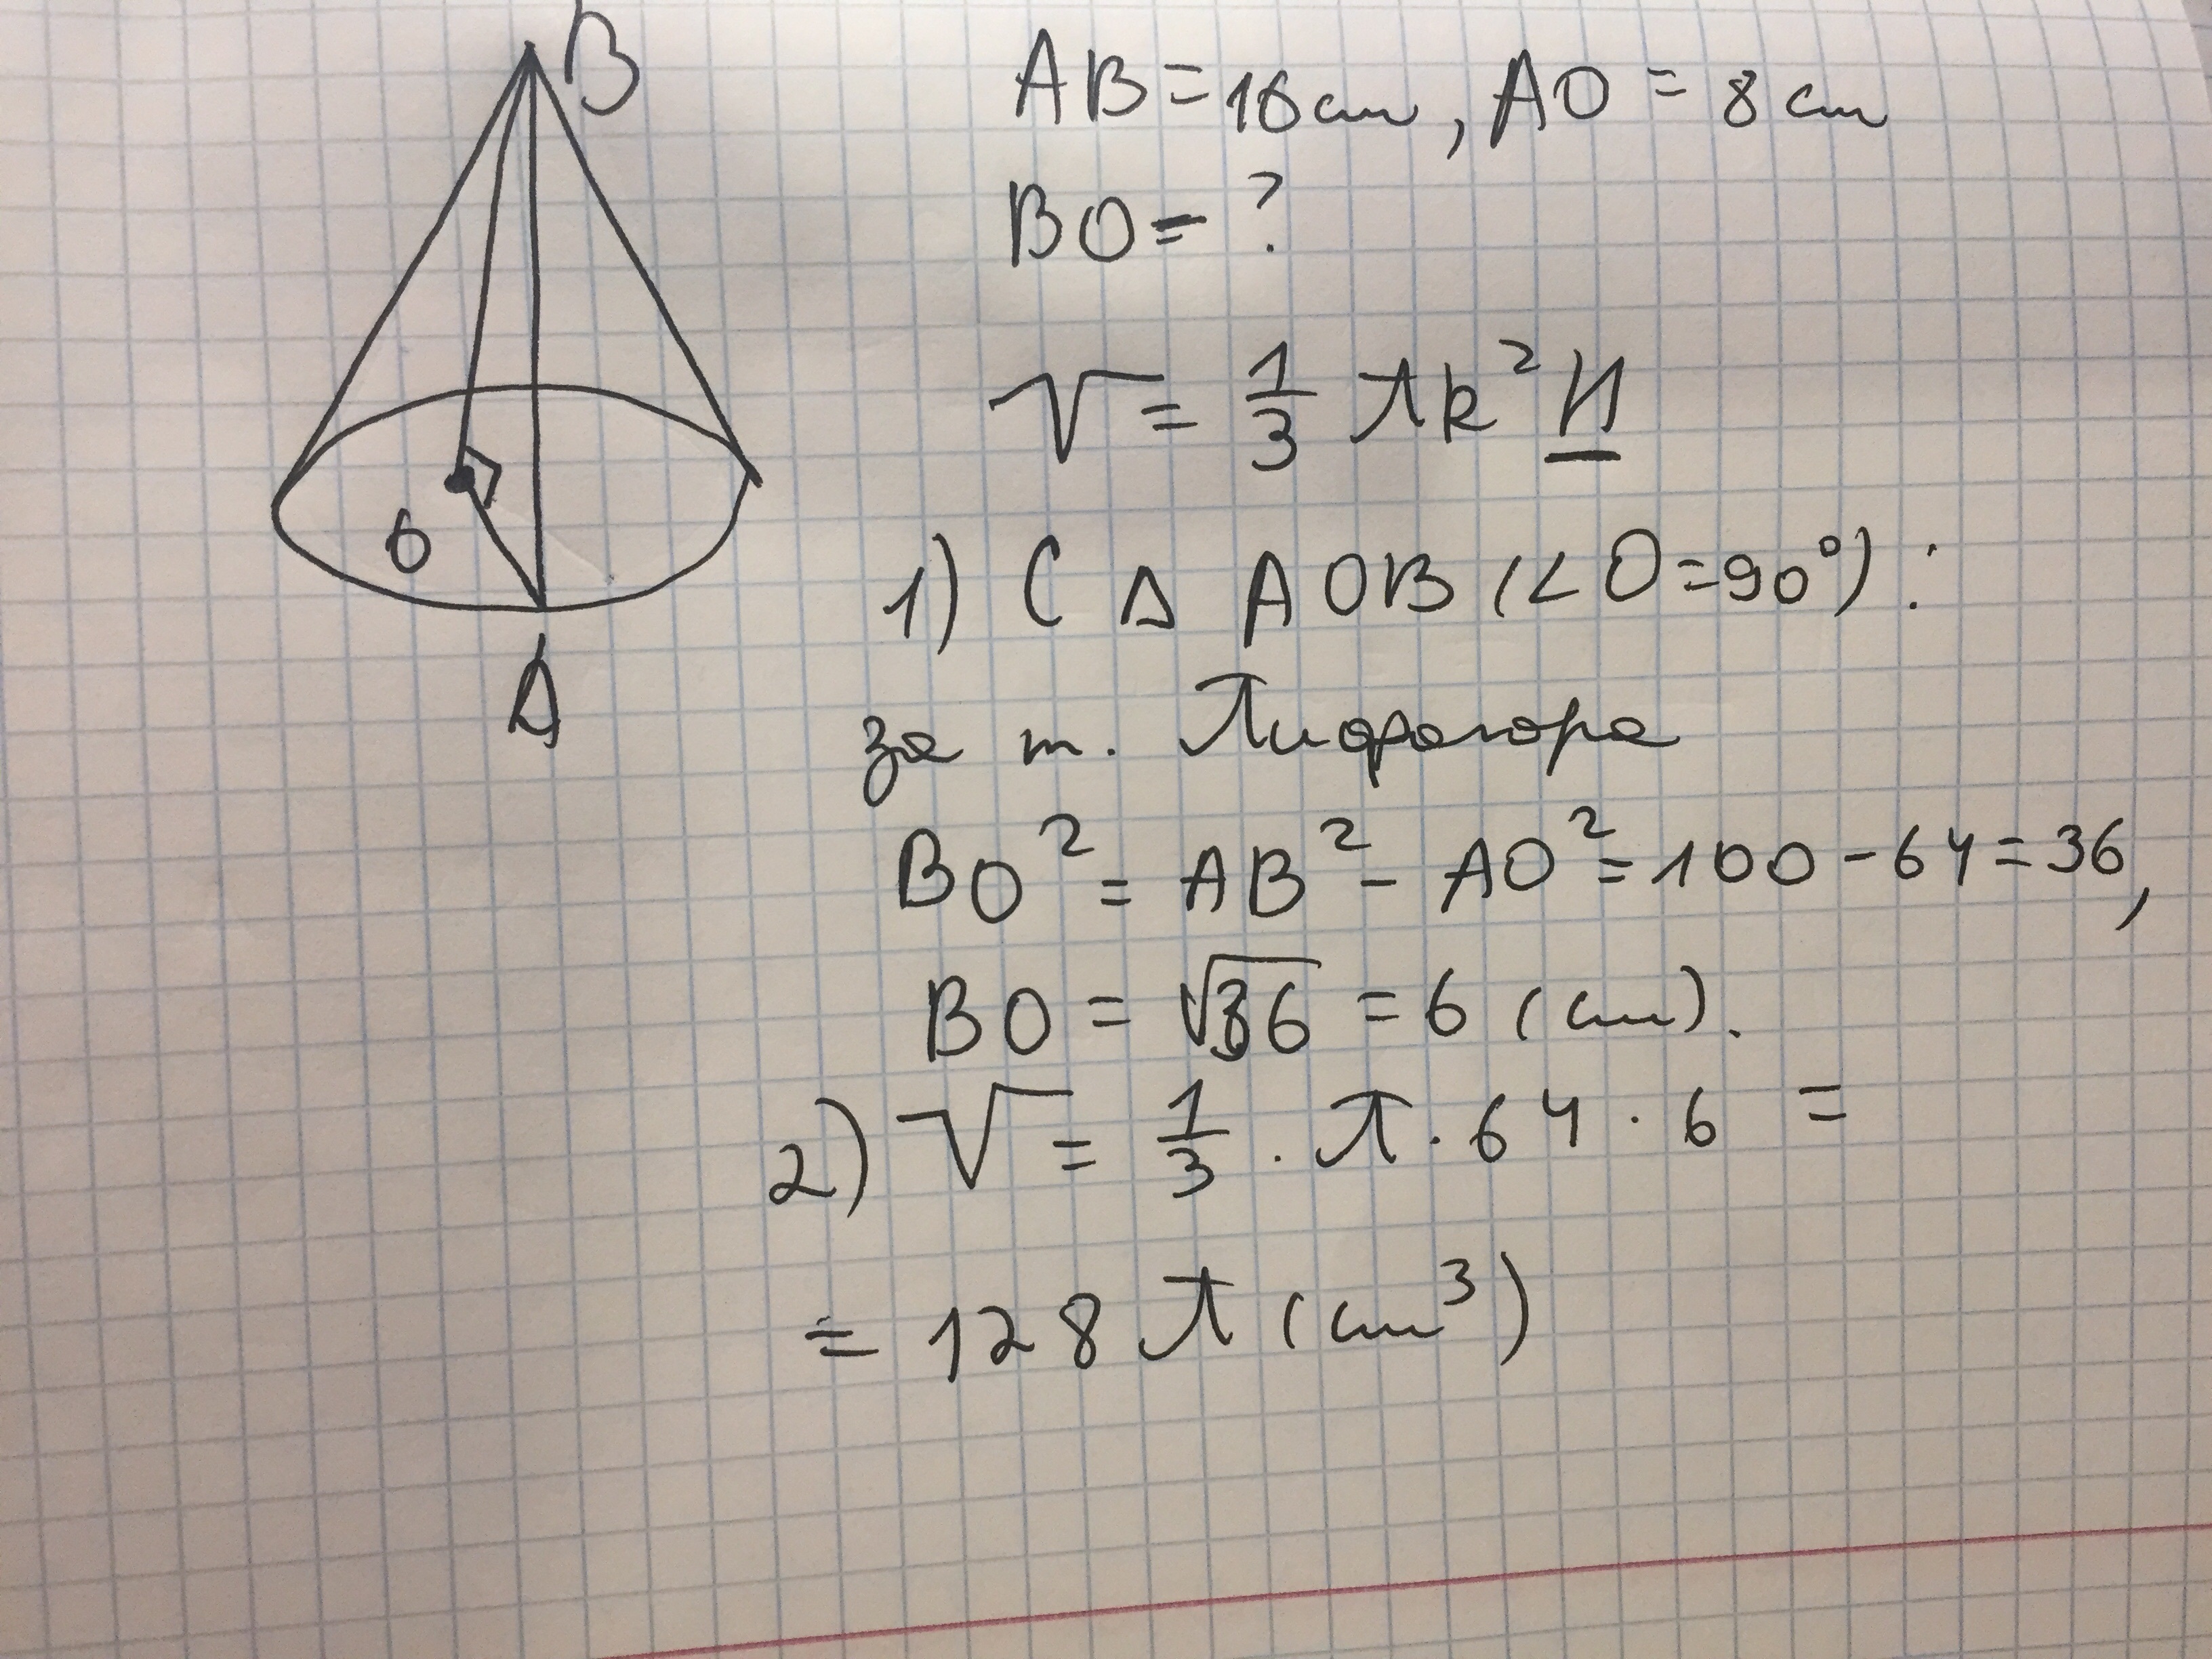 B
AB = 10 см, AO = 8 см
BO = ?
V = 1/3 πR² H
O
1) С Δ AOB (∠O=90°):
A
за т. Пифагора
BO² = AB² - AO² = 100 - 64 = 36,
BO = √36 = 6 (см).
2) V = 1/3 · π · 64 · 6 =
= 128 π (см³)